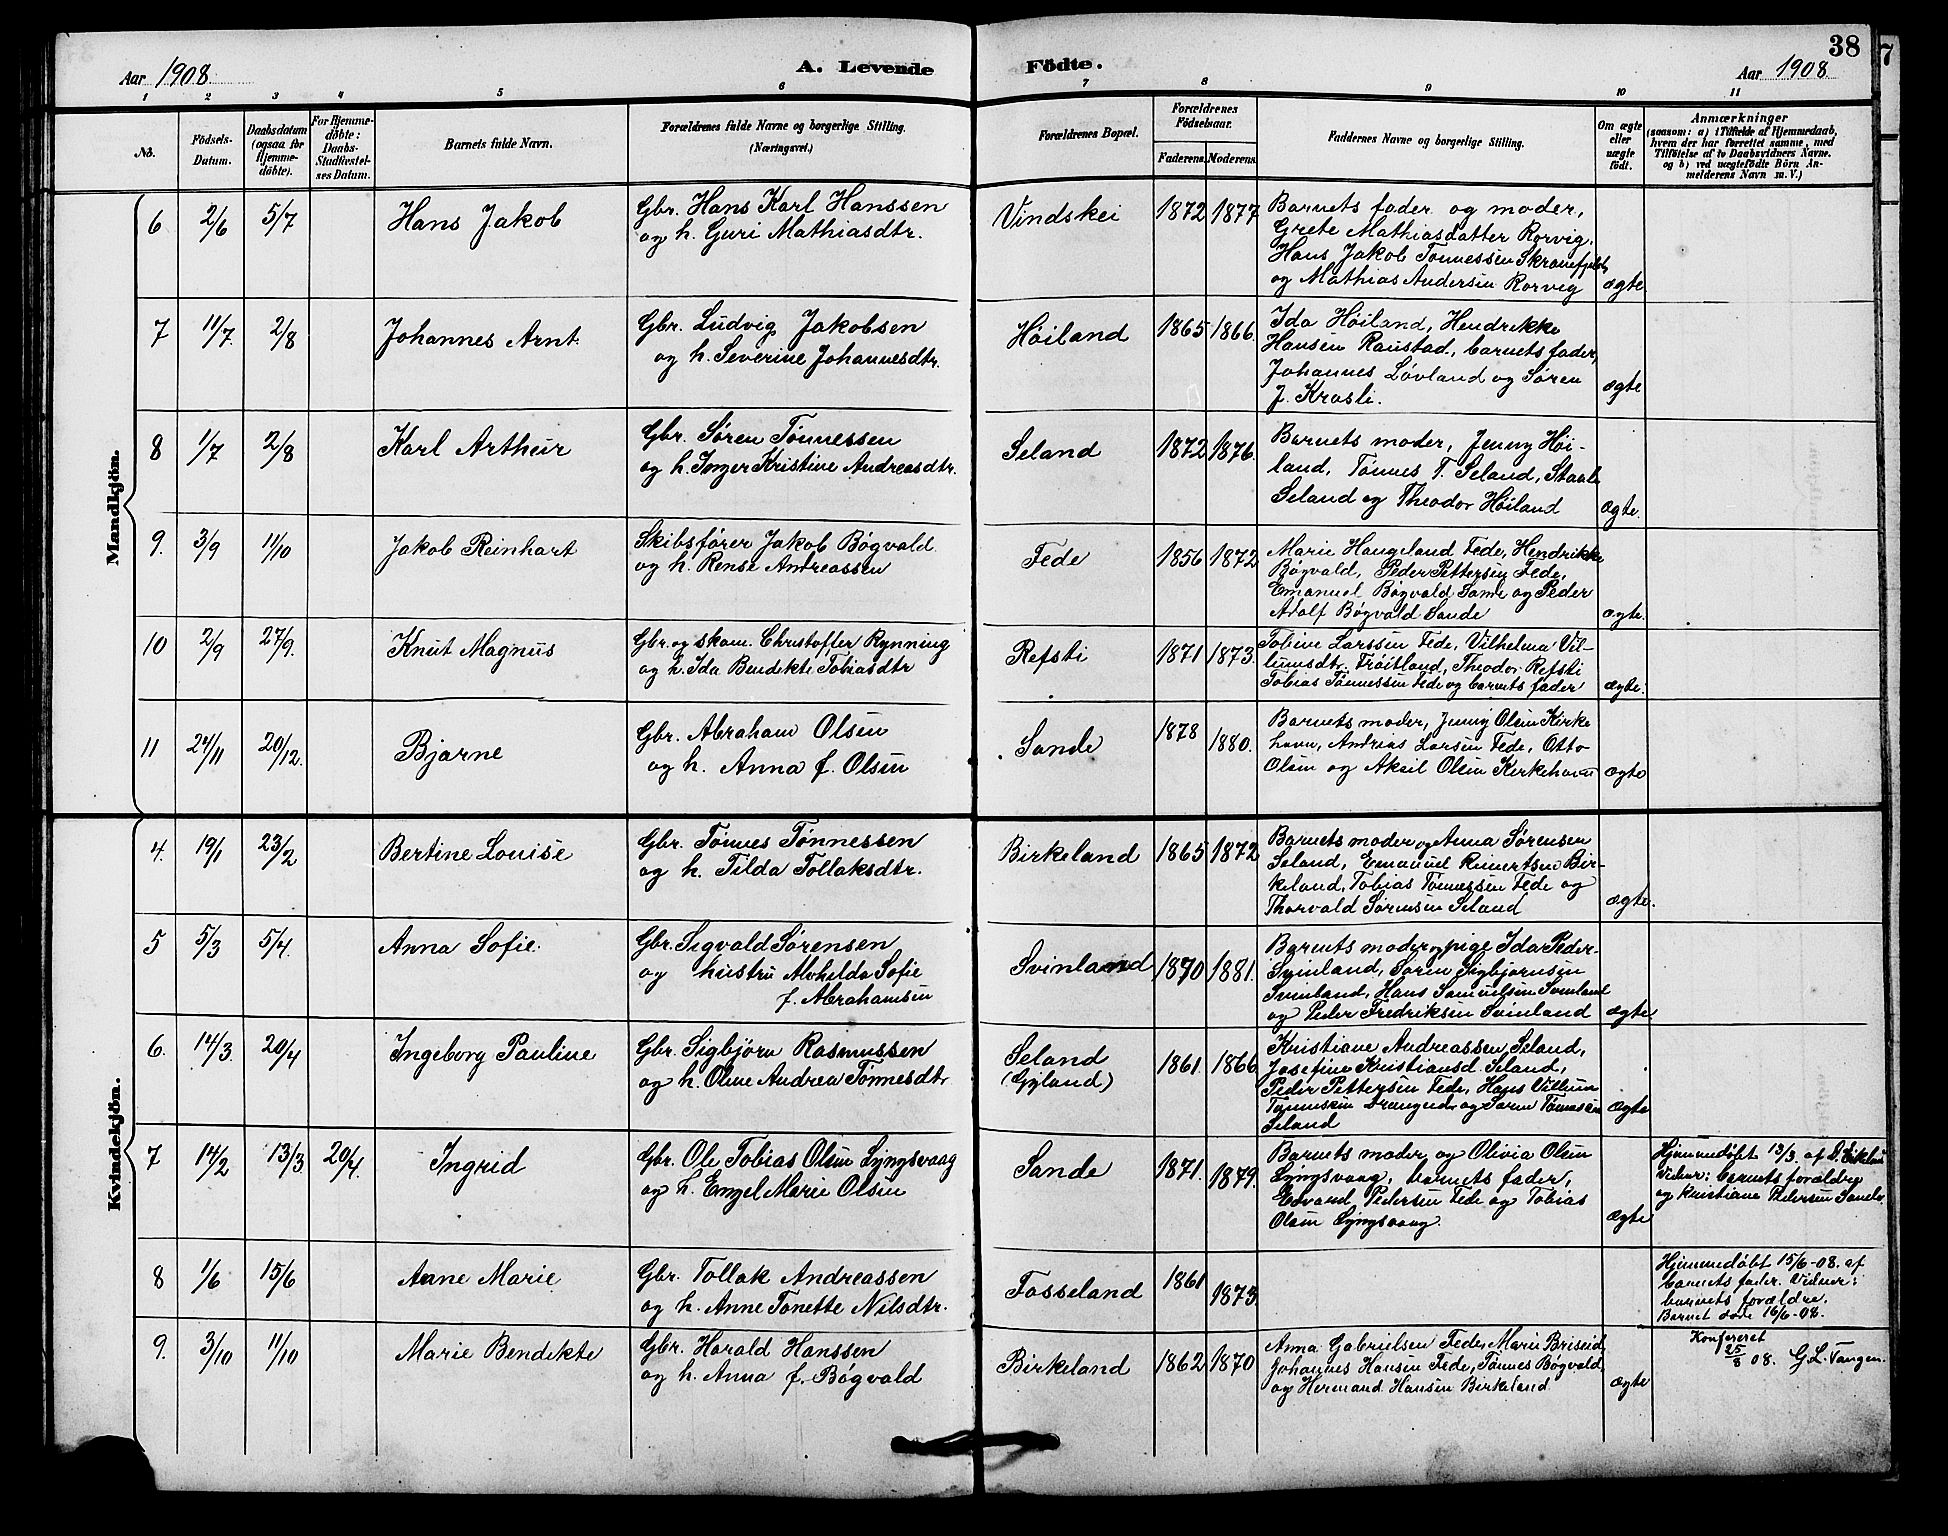 38
Aar 1908.
A. Levende Fødte.
Aar 1908
1 2 3 4 5 6 7 8 9 10 11
No.
Födsels-
Datum.
Daabsdatum
(ogsaa for
Hjemme-
döbte).
For Hjemme-
döbte:
Daabs-
Stadfæstel-
ses Datum.
Barnets fulde Navn.
Forældrenes fulde Navne og borgerlige Stilling.
(Næringsvei.)
Forældrenes Bopæl.
Forældrenes
Födselsaar.
Faderens. Moderens.
Faddernes Navne og borgerlige Stilling.
Om ægte
eller
uægte
födt.
Anmærkninger
(saasom: a) i Tilfælde af Hjemmedaab,
hvem der har forrettet samme, med
Tilföielse af to Daabsvidners Navne.
og b) ved uægtefödte Börn An-
melderens Navn m. V.)
Mandkjön.
6 2/6 5/7 Hans Jakob
Gbr. Hans Karl Hanssen
og h. Guri Mathiasdtr.
Vindskei 1872 1877
Barnets fader og moder,
Grete Mathiasdatter Rorvig.
Hans Jakob Tønnessen
og Mathias Andersen Rorvig ægte
7 11/7. 2/8 Johannes Arnt.
Gbr. Ludvig Jakobsen
og h. Severine Johannesdtr.
Høiland 1865 1866.
Ida Høiland, Hendrikke
Hansen Raustad, barnets fader,
Johannes Løvland og Søren
J. Krosli. ægte
8 1/7 2/8 Karl Arthur
Gbr. Søren Tønnessen
og h. Inger Kristine Andreasdtr.
Seland 1872 1876.
Barnets moder, Jenny Høi-
land, Tønnes T. Seland, Staale
Seland og Theodor Høiland ægte.
9. 3/9 11/10 Jakob Reinhart
Skibsfører Jakob Bøgvald.
og h. Rense Andreassen
Fede 1856 1872
Marie Haugeland Fede, Hendrikke
Bøgvald, Peder Pettersen Fede,
Emanuel Bøgvald Sande og Peder
Adolf Bøgvald Sande ægte.
10 2/9 27/9. Knut Magnus
Gbr. og skom. Christoffer Rynning
og h. Ida Bendikte Tobiasdtr
Refsti 1871 1873.
Tobine Larssen Fede, Vilhelma Vil-
lumsdtr. Frøitland, Theodor Refsti
Tobias Tønnessen Fede og barnets fader ægte.
11 24/11 20/12. Bjarne
Gbr. Abraham Olsen
og h. Anna f. Olsen
Sande 1878 1880.
Barnets moder, Jenny Olsen Kirke
havn, Andreas Larsen Fede, Otto
Olsen og Aksel Olsen Kirkehavn ægte
Kvindekjön.
4. 19/1 23/2 Bertine Louise
Gbr. Tønnes Tønnessen
og h. Tilda Tollaksdtr.
Birkeland 1865 1872
Barnets moder og Anna Sørensen
Seland, Emanuel Reinertsen Bir-
keland, Tobias Tønnessen Fede og
Thorvald Sørensen Seland ægte.
5 5/3 5/4. Anna Sofie.
Gbr. Sigvald Sørensen
og hustru Alvhilda Sofie
f. Abrahamsen
Svinland 1870 1881.
Barnets moder og pige Ida Peder-
Svinland, Søren Sigbjørnsen
Svinland, Hans Samuelsen Svinland
og Peder Fredriksen Svinland ægte
6. 14/3. 20/4 Ingeborg Pauline
Gbr. Sigbjørn Rasmussen
og h. Oline Andrea Tønnesdtr
Seland
(Gyland) 1861. 1866
Kristiane Andreassen Seland,
Josefine Kristiansd. Seland,
Peder Pettersen Fede, Hans Villum
Tønnessen og Søren Tønnessen
Seland ægte
7 14/2 13/3 20/4. Ingrid
Gbr. Ole Tobias Olsen Lyngsvaag
og h. Engel Marie Olsen
Sande 1871. 1879.
Barnets moder og Olivia Olsen
Lyngsvaag, barnets fader,
Edvard Pedersen Fede og Tobias
Olsen Lyngsvaag. ægte
Hjemmedøbt 13/3. af
Vidner: barnets forældre
og Kristiane Pedersen Sande.
8 1/6 15/6 Anne Marie
Gbr. Tollak Andreassen
og h. Anne Tonette Nilsdtr.
Fosseland 1861 1873.
Hjemmedøbt 15/6-08. af
barnets fader. Vidner:
barnets forældre.
Barnet døde 16/6-08.
9. 3/10 11/10 Marie Bendikte
Gbr. Harald Hanssen
og h. Anna f. Bøgvald
Birkeland 1862 1870
Anna Gabrielsen Fede, Marie Briseid,
Johannes Hansen Fede, Tønnes Bøgvald
og Hermand Hansen Birkeland ægte
Konfereret
25/8 08. G. L. Tangen.